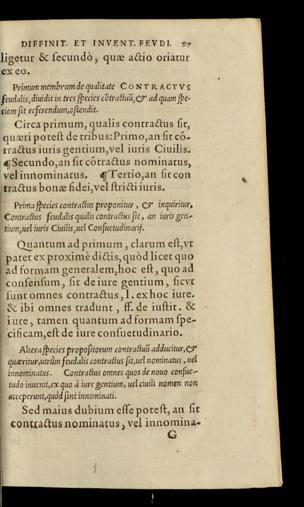 DIFFINIT. ET INVENT. FEVDI. 97
ligetur & secundò, quæ actio oriatur
ex eo.
Primum membrum de qualitate CONTRACTVS
feudalis, diuidit in tres species cõtractuũ, & ad quam spe-
ciem sit referendum, ostendit.
Circa primum, qualis contractus sit,
quæri potest de tribus: Primo, an sit cõ-
tractus iuris gentium, vel iuris Ciuilis.
¶ Secundo, an sit cõtractus nominatus,
vel innominatus. ¶ Tertio, an sit con
tractus bonæ fidei, vel stricti iuris.
Prima species contractus proponitur, & inquiritur,
Contractus feudalis qualis contractus sit, an iuris gen-
tium, uel iuris Ciuilis, uel Consuetudinarij.
Quantum ad primum, clarum est, vt
patet ex proximè dictis, quòd licet quo
ad formam generalem, hoc est, quo ad
consensum, sit de iure gentium, sicut
sunt omnes contractus, l. ex hoc iure.
& ibi omnes tradunt, ff. de iustit. &
iure, tamen quantum ad formam spe-
cificam, est de iure consuetudinario.
Altera species propositorum contractuũ adducitur, &
quæritur, utrùm feudalis contractus sit, uel nominatus, uel
innominatus. Contractus omnes quos de nouo consue-
tudo inuenit, ex quo à iure gentium, uel ciuili nomen non
acceperunt, quòd sint innominati.
Sed maius dubium esse potest, an sit
contractus nominatus, vel innomina-
G